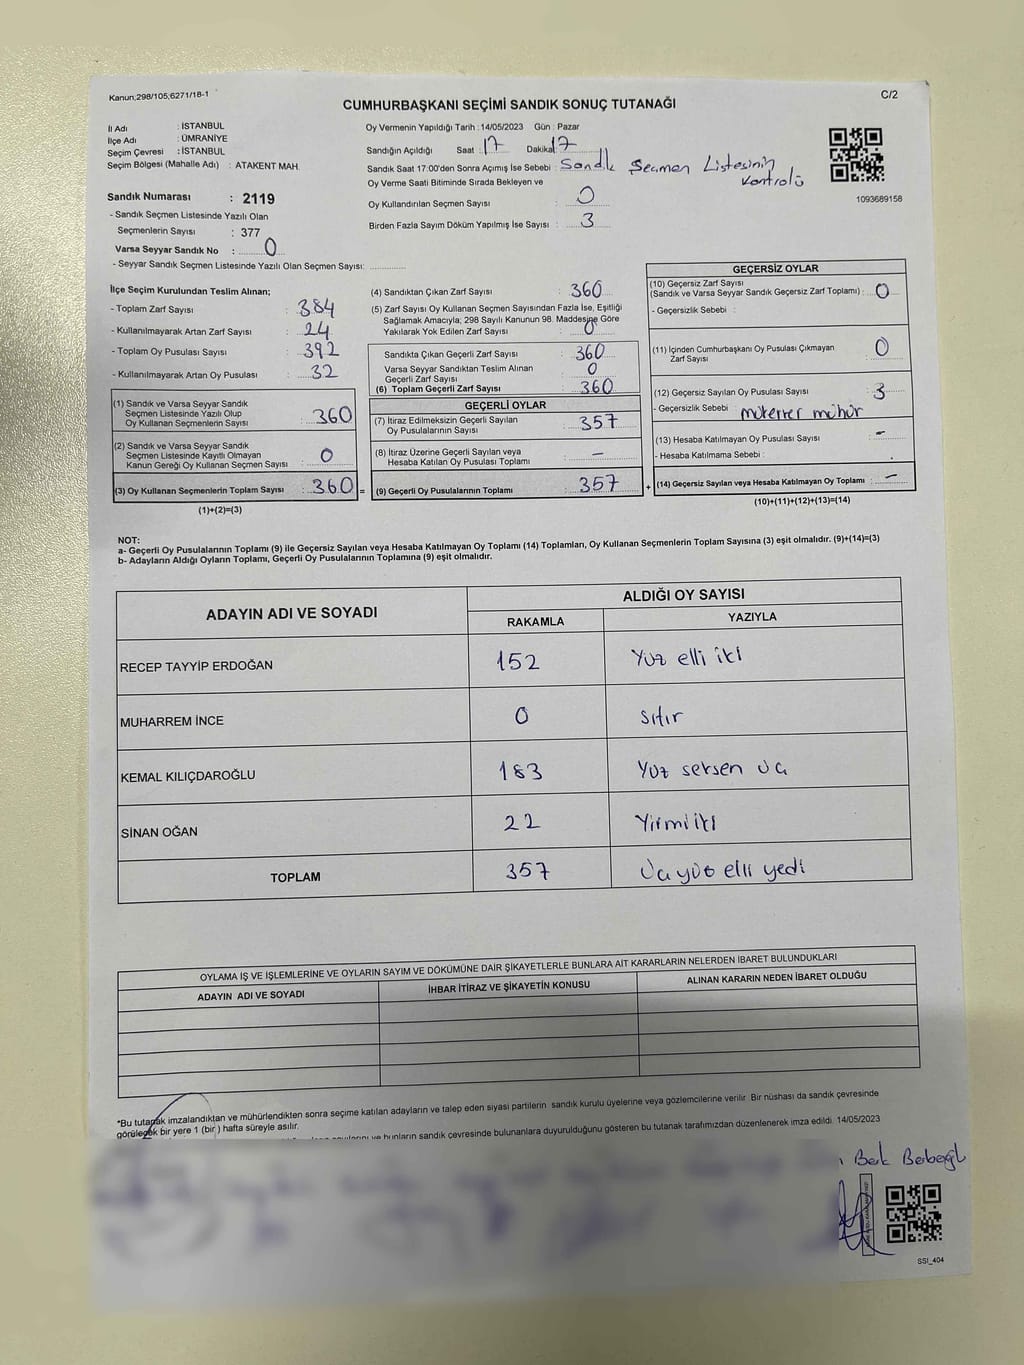 Kanun;298/105;6271/18-1
C/2
CUMHURBAŞKANI SEÇİMİ SANDIK SONUÇ TUTANAĞI
İl Adı : İSTANBUL
İlçe Adı : ÜMRANİYE
Seçim Çevresi : İSTANBUL
Seçim Bölgesi (Mahalle Adı) : ATAKENT MAH.
Sandık Numarası : 2119
- Sandık Seçmen Listesinde Yazılı Olan
Seçmenlerin Sayısı : 377
Varsa Seyyar Sandık No : 0
- Seyyar Sandık Seçmen Listesinde Yazılı Olan Seçmen Sayısı:
Oy Vermenin Yapıldığı Tarih : 14/05/2023 Gün : Pazar
Sandığın Açıldığı Saat : 17 Dakika : 17
Sandık Saat 17:00'den Sonra Açımış İse Sebebi : Sandık Seçmen Listesinin
kontrolü
Oy Verme Saati Bitiminde Sırada Bekleyen ve
Oy Kullandırılan Seçmen Sayısı : 0
Birden Fazla Sayım Döküm Yapılmış İse Sayısı : 3
1093689158
İlçe Seçim Kurulundan Teslim Alınan;
- Toplam Zarf Sayısı : 384
- Kullanılmayarak Artan Zarf Sayısı : 24
- Toplam Oy Pusulası Sayısı : 392
- Kullanılmayarak Artan Oy Pusulası : 32
(1) Sandık ve Varsa Seyyar Sandık
Seçmen Listesinde Yazılı Olup
Oy Kullanan Seçmenlerin Sayısı : 360
(2) Sandık ve Varsa Seyyar Sandık
Seçmen Listesinde Kayıtlı Olmayan
Kanun Gereği Oy Kullanan Seçmen Sayısı : 0
(3) Oy Kullanan Seçmenlerin Toplam Sayısı : 360 =
(1)+(2)=(3)
(4) Sandıktan Çıkan Zarf Sayısı : 360
(5) Zarf Sayısı Oy Kullanan Seçmen Sayısından Fazla İse, Eşitliği
Sağlamak Amacıyla; 298 Sayılı Kanunun 98. Maddesine Göre
Yakılarak Yok Edilen Zarf Sayısı : 0
Sandıkta Çıkan Geçerli Zarf Sayısı : 360
Varsa Seyyar Sandıktan Teslim Alınan
Geçerli Zarf Sayısı : 0
(6) Toplam Geçerli Zarf Sayısı : 360
GEÇERLİ OYLAR
(7) İtiraz Edilmeksizin Geçerli Sayılan
Oy Pusulalarının Sayısı : 357
(8) İtiraz Üzerine Geçerli Sayılan veya
Hesaba Katılan Oy Pusulası Toplamı : -
(9) Geçerli Oy Pusulalarının Toplamı : 357 +
GEÇERSİZ OYLAR
(10) Geçersiz Zarf Sayısı
(Sandık ve Varsa Seyyar Sandık Geçersiz Zarf Toplamı) : 0
- Geçersizlik Sebebi :
(11) İçinden Cumhurbaşkanı Oy Pusulası Çıkmayan
Zarf Sayısı : 0
(12) Geçersiz Sayılan Oy Pusulası Sayısı : 3
- Geçersizlik Sebebi : mükerrer mühür
(13) Hesaba Katılmayan Oy Pusulası Sayısı : -
- Hesaba Katılmama Sebebi :
(14) Geçersiz Sayılan veya Hesaba Katılmayan Oy Toplamı : -
(10)+(11)+(12)+(13)=(14)
NOT:
a- Geçerli Oy Pusulalarının Toplamı (9) ile Geçersiz Sayılan veya Hesaba Katılmayan Oy Toplamı (14) Toplamları, Oy Kullanan Seçmenlerin Toplam Sayısına (3) eşit olmalıdır. (9)+(14)=(3)
b- Adayların Aldığı Oyların Toplamı, Geçerli Oy Pusulalarının Toplamına (9) eşit olmalıdır.
ADAYIN ADI VE SOYADI
ALDIĞI OY SAYISI
RAKAMLA YAZIYLA
RECEP TAYYİP ERDOĞAN 152 Yüz elli iki
MUHARREM İNCE 0 sıfır
KEMAL KILIÇDAROĞLU 183 Yüz seksen üç
SİNAN OĞAN 22 Yirmi iki
TOPLAM 357 Üç yüz elli yedi
OYLAMA İŞ VE İŞLEMLERİNE VE OYLARIN SAYIM VE DÖKÜMÜNE DAİR ŞİKAYETLERLE BUNLARA AİT KARARLARIN NELERDEN İBARET BULUNDUKLARI
ADAYIN ADI VE SOYADI İHBAR İTİRAZ VE ŞİKAYETİN KONUSU ALINAN KARARIN NEDEN İBARET OLDUĞU
*Bu tutanak imzalandıktan ve mühürlendikten sonra seçime katılan adayların ve talep eden siyasi partilerin sandık kurulu üyelerine veya gözlemcilerine verilir. Bir nüshası da sandık çevresinde
görülecek bir yere 1 (bir) hafta süreyle asılır.
ve bunların sandık çevresinde bulunanlara duyurulduğunu gösteren bu tutanak tarafımızdan düzenlenerek imza edildi. 14/05/2023
SSI_404